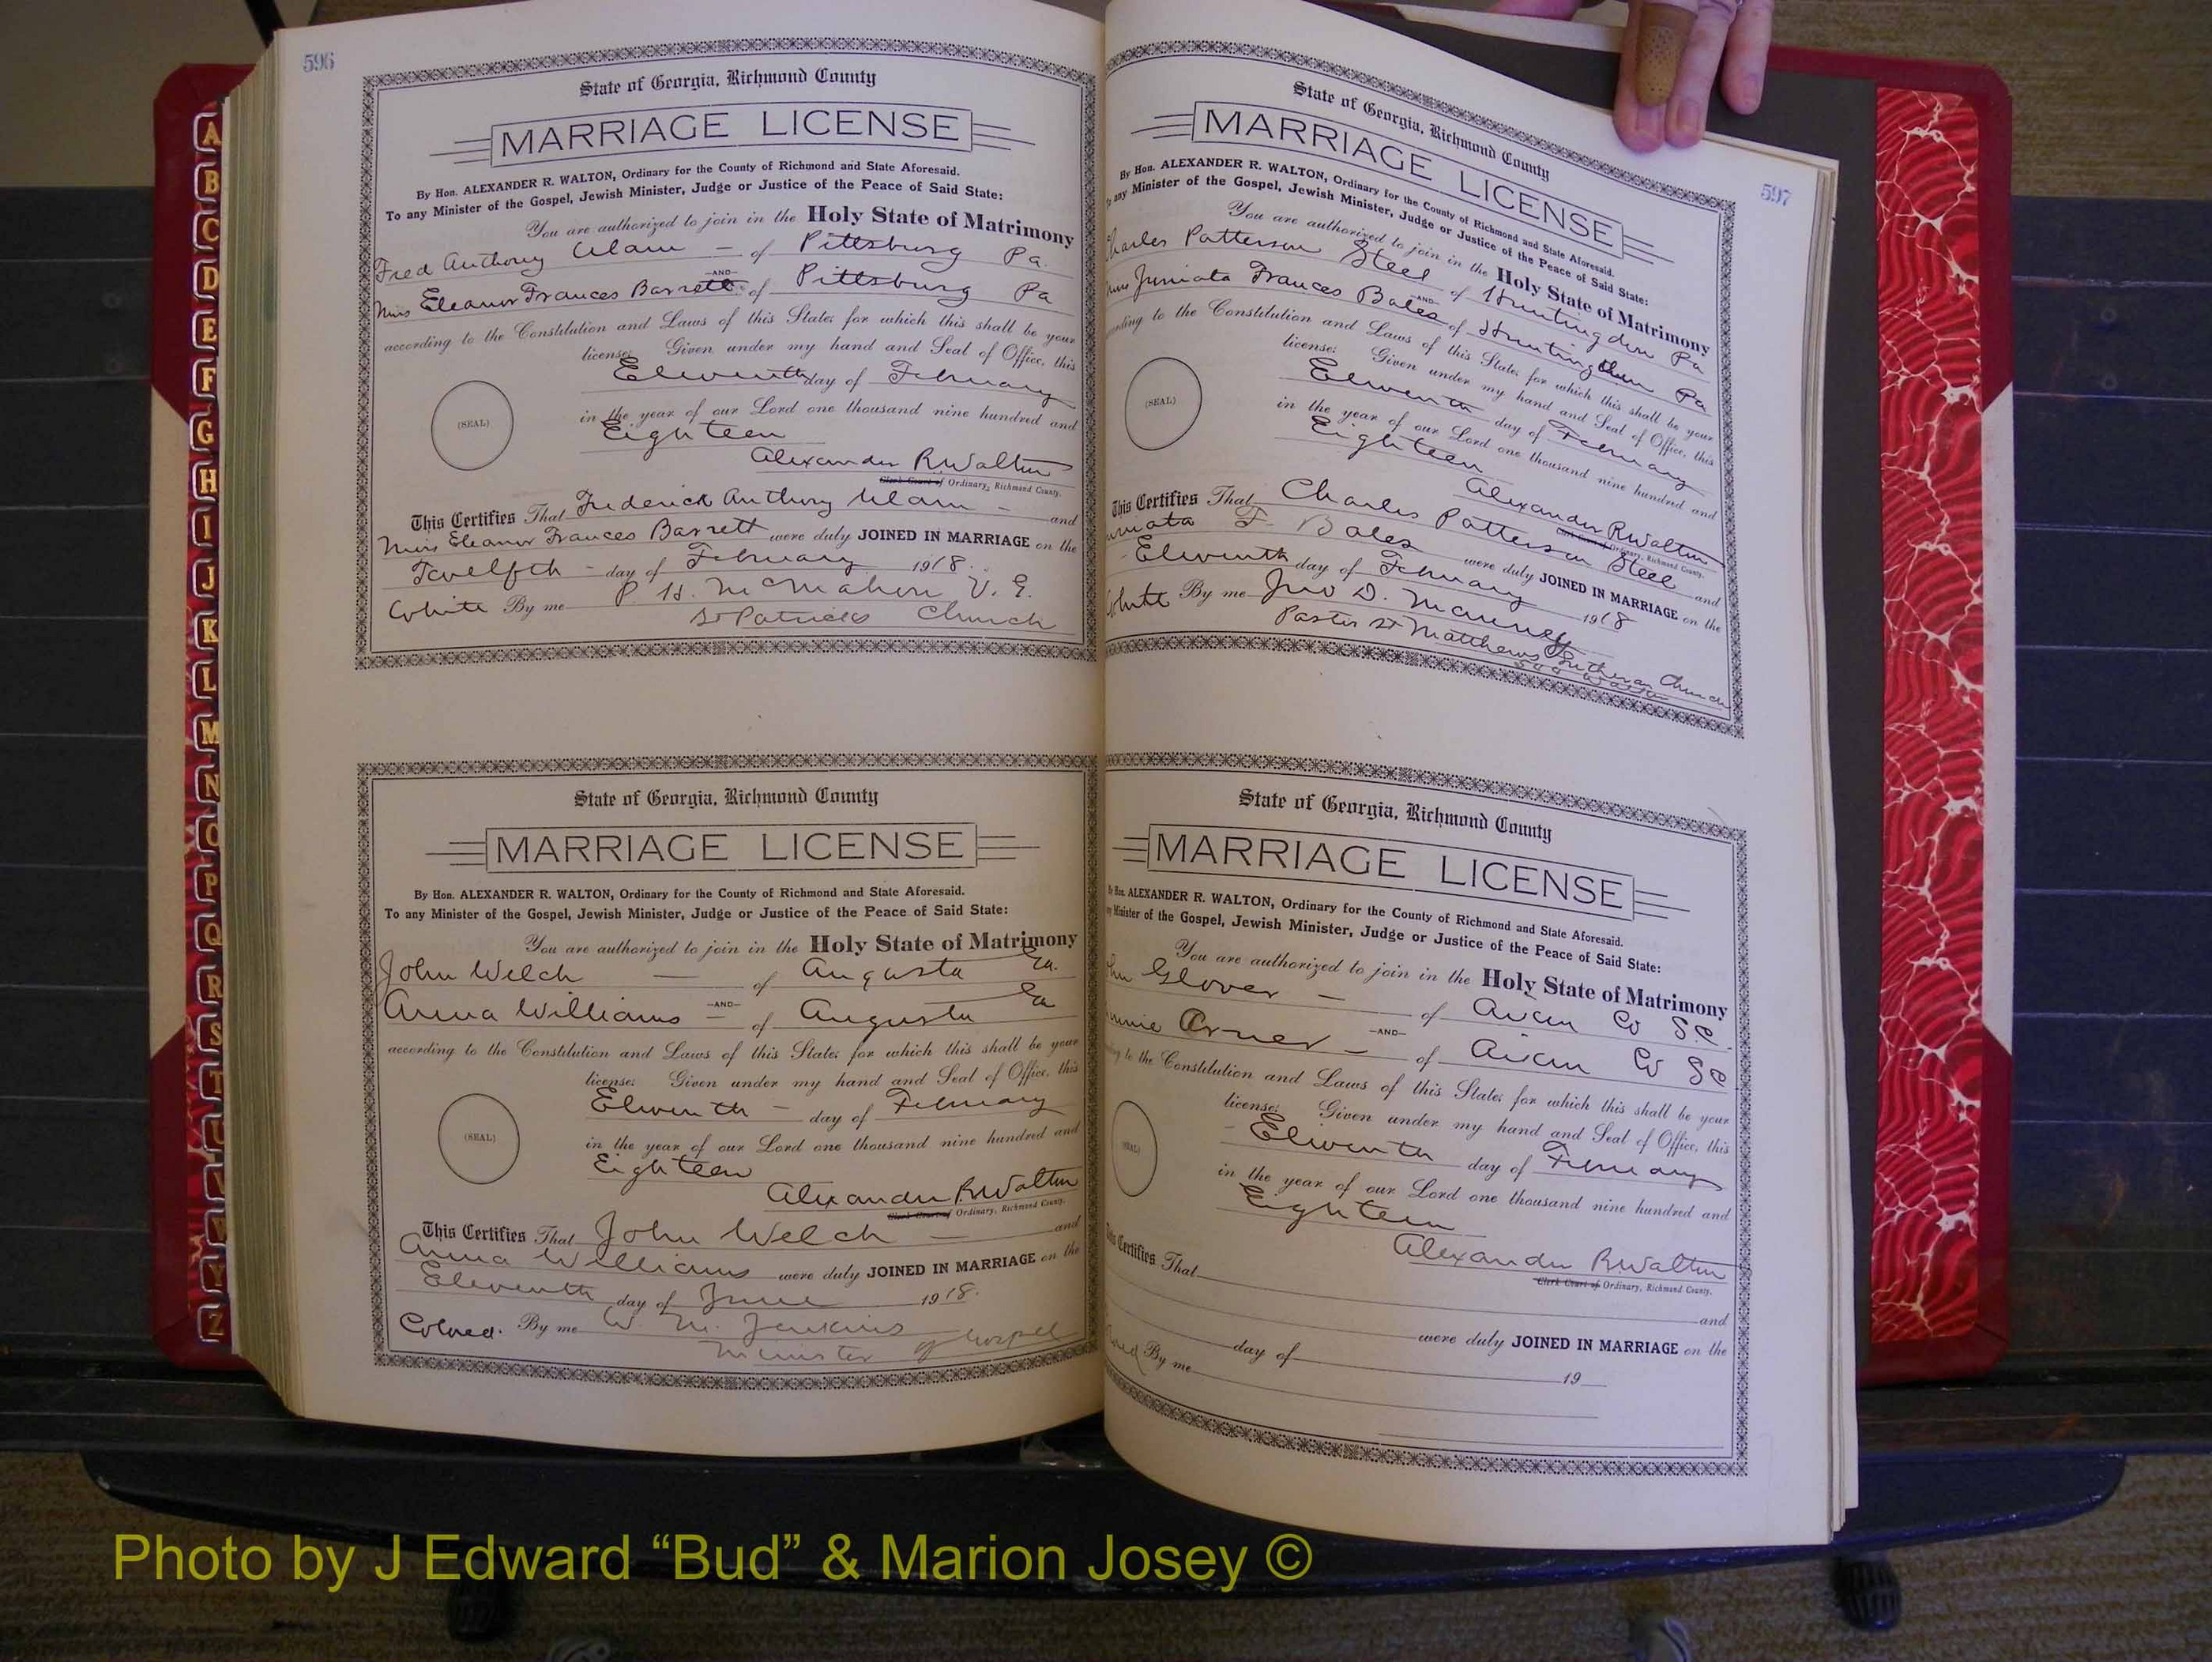 596
State of Georgia, Richmond County
MARRIAGE LICENSE
By Hon. ALEXANDER R. WALTON, Ordinary for the County of Richmond and State Aforesaid.
To any Minister of the Gospel, Jewish Minister, Judge or Justice of the Peace of Said State:
You are authorized to join in the Holy State of Matrimony
Fred Anthony of Pittsburg Pa.
AND
Miss Eleanor Frances Barrett of Pittsburg Pa
according to the Constitution and Laws of this State; for which this shall be your
license; Given under my hand and Seal of Office, this
Eleventh day of February
(SEAL)
in the year of our Lord one thousand nine hundred and
Eighteen
Alexander R Walton
Clerk Court of Ordinary, Richmond County.
This Certifies That Frederick Anthony and
Miss Eleanor Frances Barrett were duly JOINED IN MARRIAGE on the
Twelfth - day of February 1918.
White By me P. H. McMahon V. G.
St Patricks Church
State of Georgia, Richmond County
MARRIAGE LICENSE
By Hon. ALEXANDER R. WALTON, Ordinary for the County of Richmond and State Aforesaid.
To any Minister of the Gospel, Jewish Minister, Judge or Justice of the Peace of Said State:
You are authorized to join in the Holy State of Matrimony
John Welch — of Augusta Ga.
AND
Anna Williams — of Augusta Ga
according to the Constitution and Laws of this State; for which this shall be your
license; Given under my hand and Seal of Office, this
Eleventh - day of February
(SEAL)
in the year of our Lord one thousand nine hundred and
Eighteen
Alexander R Walton
Clerk Court of Ordinary, Richmond County.
This Certifies That John Welch — and
Anna Williams were duly JOINED IN MARRIAGE on the
Eleventh day of June 1918.
Colored. By me W. M. Jenkins
Minister of Gospel
597
State of Georgia, Richmond County
MARRIAGE LICENSE
By Hon. ALEXANDER R. WALTON, Ordinary for the County of Richmond and State Aforesaid.
To any Minister of the Gospel, Jewish Minister, Judge or Justice of the Peace of Said State:
You are authorized to join in the Holy State of Matrimony
Charles Patterson Steel of Huntingdon Pa
AND
Juniata Frances Bales of Huntingdon Pa
according to the Constitution and Laws of this State; for which this shall be your
license; Given under my hand and Seal of Office, this
Eleventh day of February
(SEAL)
in the year of our Lord one thousand nine hundred and
Eighteen
Alexander R Walton
Clerk Court of Ordinary, Richmond County.
This Certifies That Charles Patterson Steel and
F. Bales were duly JOINED IN MARRIAGE on the
Eleventh day of February 1918
White By me Jno D. Mauney
Pastor St Matthews Lutheran Church
State of Georgia, Richmond County
MARRIAGE LICENSE
By Hon. ALEXANDER R. WALTON, Ordinary for the County of Richmond and State Aforesaid.
Minister of the Gospel, Jewish Minister, Judge or Justice of the Peace of Said State:
You are authorized to join in the Holy State of Matrimony
Glover — of Aiken Co S.C.
AND
— of Aiken Co SC
to the Constitution and Laws of this State; for which this shall be your
license; Given under my hand and Seal of Office, this
Eleventh day of February
(SEAL)
in the year of our Lord one thousand nine hundred and
Eighteen
Alexander R Walton
Clerk Court of Ordinary, Richmond County.
This Certifies That
and
were duly JOINED IN MARRIAGE on the
day of 19
By me
A
B
C
D
E
F
G
H
I
J
K
L
M
N
O
P
Q
R
S
T
U
V
W
Y
Z
Photo by J Edward “Bud” & Marion Josey ©